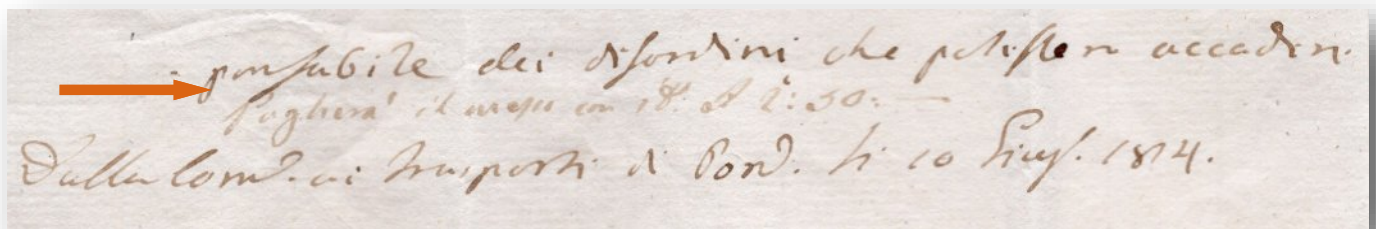 ponsabile dei disordini che potesser accader.
Pagherà il messo con It. £ 2:50:—
Dalla Com.e ai trasporti di Pord. li 10 Giug. 1814.